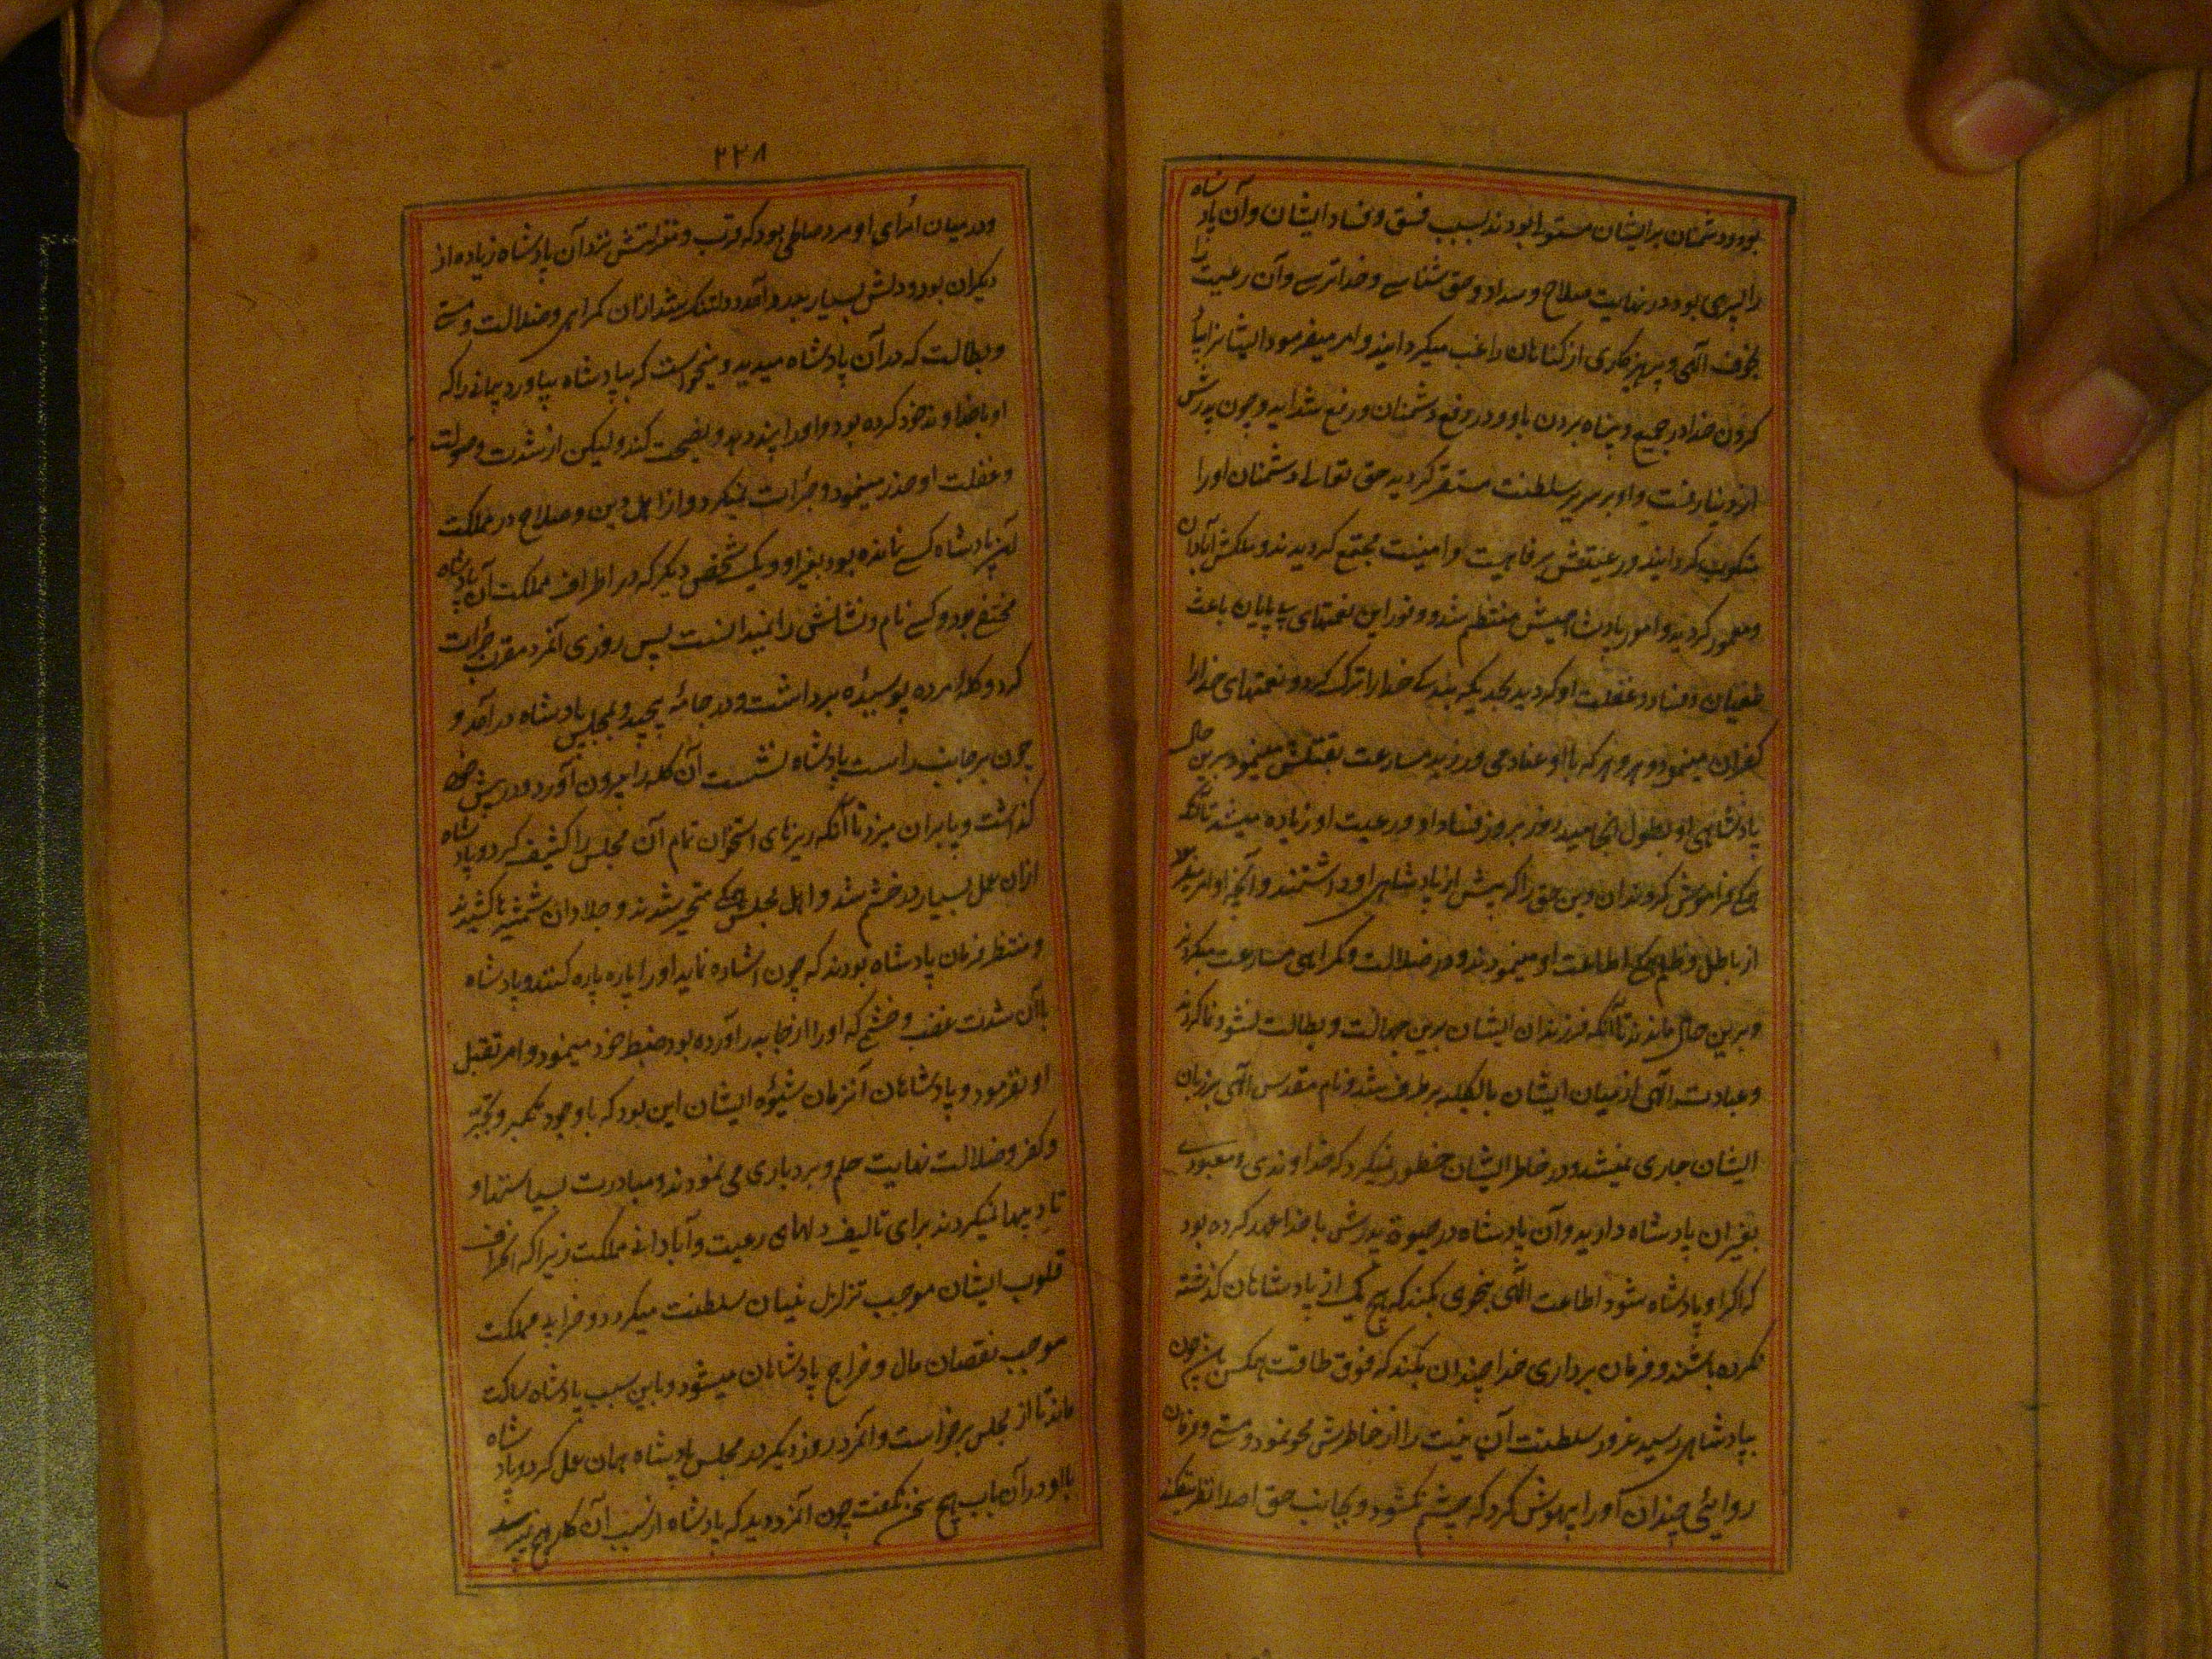 بود و دشمنان بر ایشان مستولی بودند بسبب فسق و فساد ایشان و آن پادشاه
را پسری بود در نهایت صلاح و سداد و حق شناسی و خداترسی و آن رعیت را
بخوف الهی و پرهیزکاری از گناهان راغب میگردانید و امر میفرمود ایشانرا بیاد
کردن خدا در جمیع و پناه بردن باو در دفع دشمنان و رفع شداید و چون پدرش
از دنیا رفت و او بر سریر سلطنت مستقر گردید حق تعالی دشمنان او را
منکوب گردانید و رعیتش برفاهیت و امنیت مجتمع گردیدند و ملکش آبادان
و معمور گردید و امور پادشاهیش منتظم شد و وفور این نعمتهای بی پایان باعث
طغیان و فساد و غفلت او گردید بحدیکه بندگی خدا را ترک کرد و نعمتهای خدا را
کفران مینمود و هر که با او عناد می ورزید مسارعت بقتلش مینمود و برین حال
پادشاهی او بطول انجامید روز بروز فساد او و رعیت او زیاده میشد تا آنکه
همگی فراموش کردند آن دین حق را که پیش از پادشاهی او داشتند و آنچه او امر میفرمود
از باطل و ظلم همگی اطاعت او مینمودند و در ضلالت و گمراهی مسارعت میکردند
و برین حال ماندند تا آنکه فرزندان ایشان برین جهالت و بطالت نشو و نما کردند
و عبادت الهی از میان ایشان بالکلیه برطرف شد و نام مقدس الهی بر زبان
ایشان جاری نمیشد و در خاطر ایشان خطور نمیکرد که خداوندی و معبودی
بغیر آن پادشاه دارند و آن پادشاه در حیوة پدرش با خدا عهد کرده بود
که اگر او پادشاه شود اطاعت الهی بنحوی بکند که هیچ یک از پادشاهان گذشته
نکرده باشند و فرمان برداری خدا چندان بکند که فوق طاقت همکس باشد چون
بپادشاهی رسید غرور سلطنت آن نیت را از خاطرش محو نمود و مستی و فرمان
روائی چندان او را بیهوش کرد که چشم نگشود و بجانب حق اصلا نظر نیفکند
٢٢٨
و در میان امرای او مرد صالحی بود که قرب و منزلتش نزد آن پادشاه زیاده از
دیگران بود و دلش بسیار بدرد آمد و دلتنگ شد از آن گمراهی و ضلالت و مستی
و بطالت که در آن پادشاه میدید و میخواست که بپادشاه بیاورد پیمانی را که
او با خداوند خود کرده بود و او را پند دهد و نصیحت کند ولیکن از شدت و صولت
و غفلت او حذر مینمود و جرأت نمیکرد و از اهل دین و صلاح در مملکت
آن پادشاه کسی نمانده بود بغیر او و یک شخص دیگر که در اطراف مملکت آن پادشاه
مختفی بود و کسی نام و نشانش را نمیدانست پس روزی آنمرد مقرب جرأت
کرد و کله مرده پوسیده برداشت و در جامه پیچید و بمجلس پادشاه در آمد و
چون بر جانب راست پادشاه نشست آن کله را بیرون آورد و در پیش خود
گذاشت و پا بر آن میزد تا آنکه ریزهای استخوان تمام آن مجلس را کثیف کرد و پادشاه
از آن عمل بسیار در خشم شد و اهل مجلس همگی متحیر شدند و جلادان شمشیرها کشیدند
و منتظر فرمان پادشاه بودند که چون اشاره نماید او را پاره پاره کنند و پادشاه
با آن شدت غضب و خشم که او را از جا بدر آورده بود ضبط خود مینمود و امر بقتل
او نفرمود و پادشاهان آنزمان شیوه ایشان این بود که با وجود تکبر و تجبر
و کفر و ضلالت نهایت حلم و بردباری می نمودند و مبادرت بسیاستها و
تادیبها نمیکردند برای تالیف دلهای رعیت و آبادانی مملکت زیرا که انحراف
قلوب ایشان موجب تزلزل بنیان سلطنت میگردد و خرابه مملکت
موجب نقصان مال و خراج پادشاهان میشود و باین سبب پادشاه ساکت
ماند تا از مجلس برخواست و آنمرد روز دیگر در مجلس پادشاه همان عمل کرد و پادشاه
با او در آن باب هیچ سخن نگفت چون آنمرد دید که پادشاه از سبب آن کله هیچ نپرسید